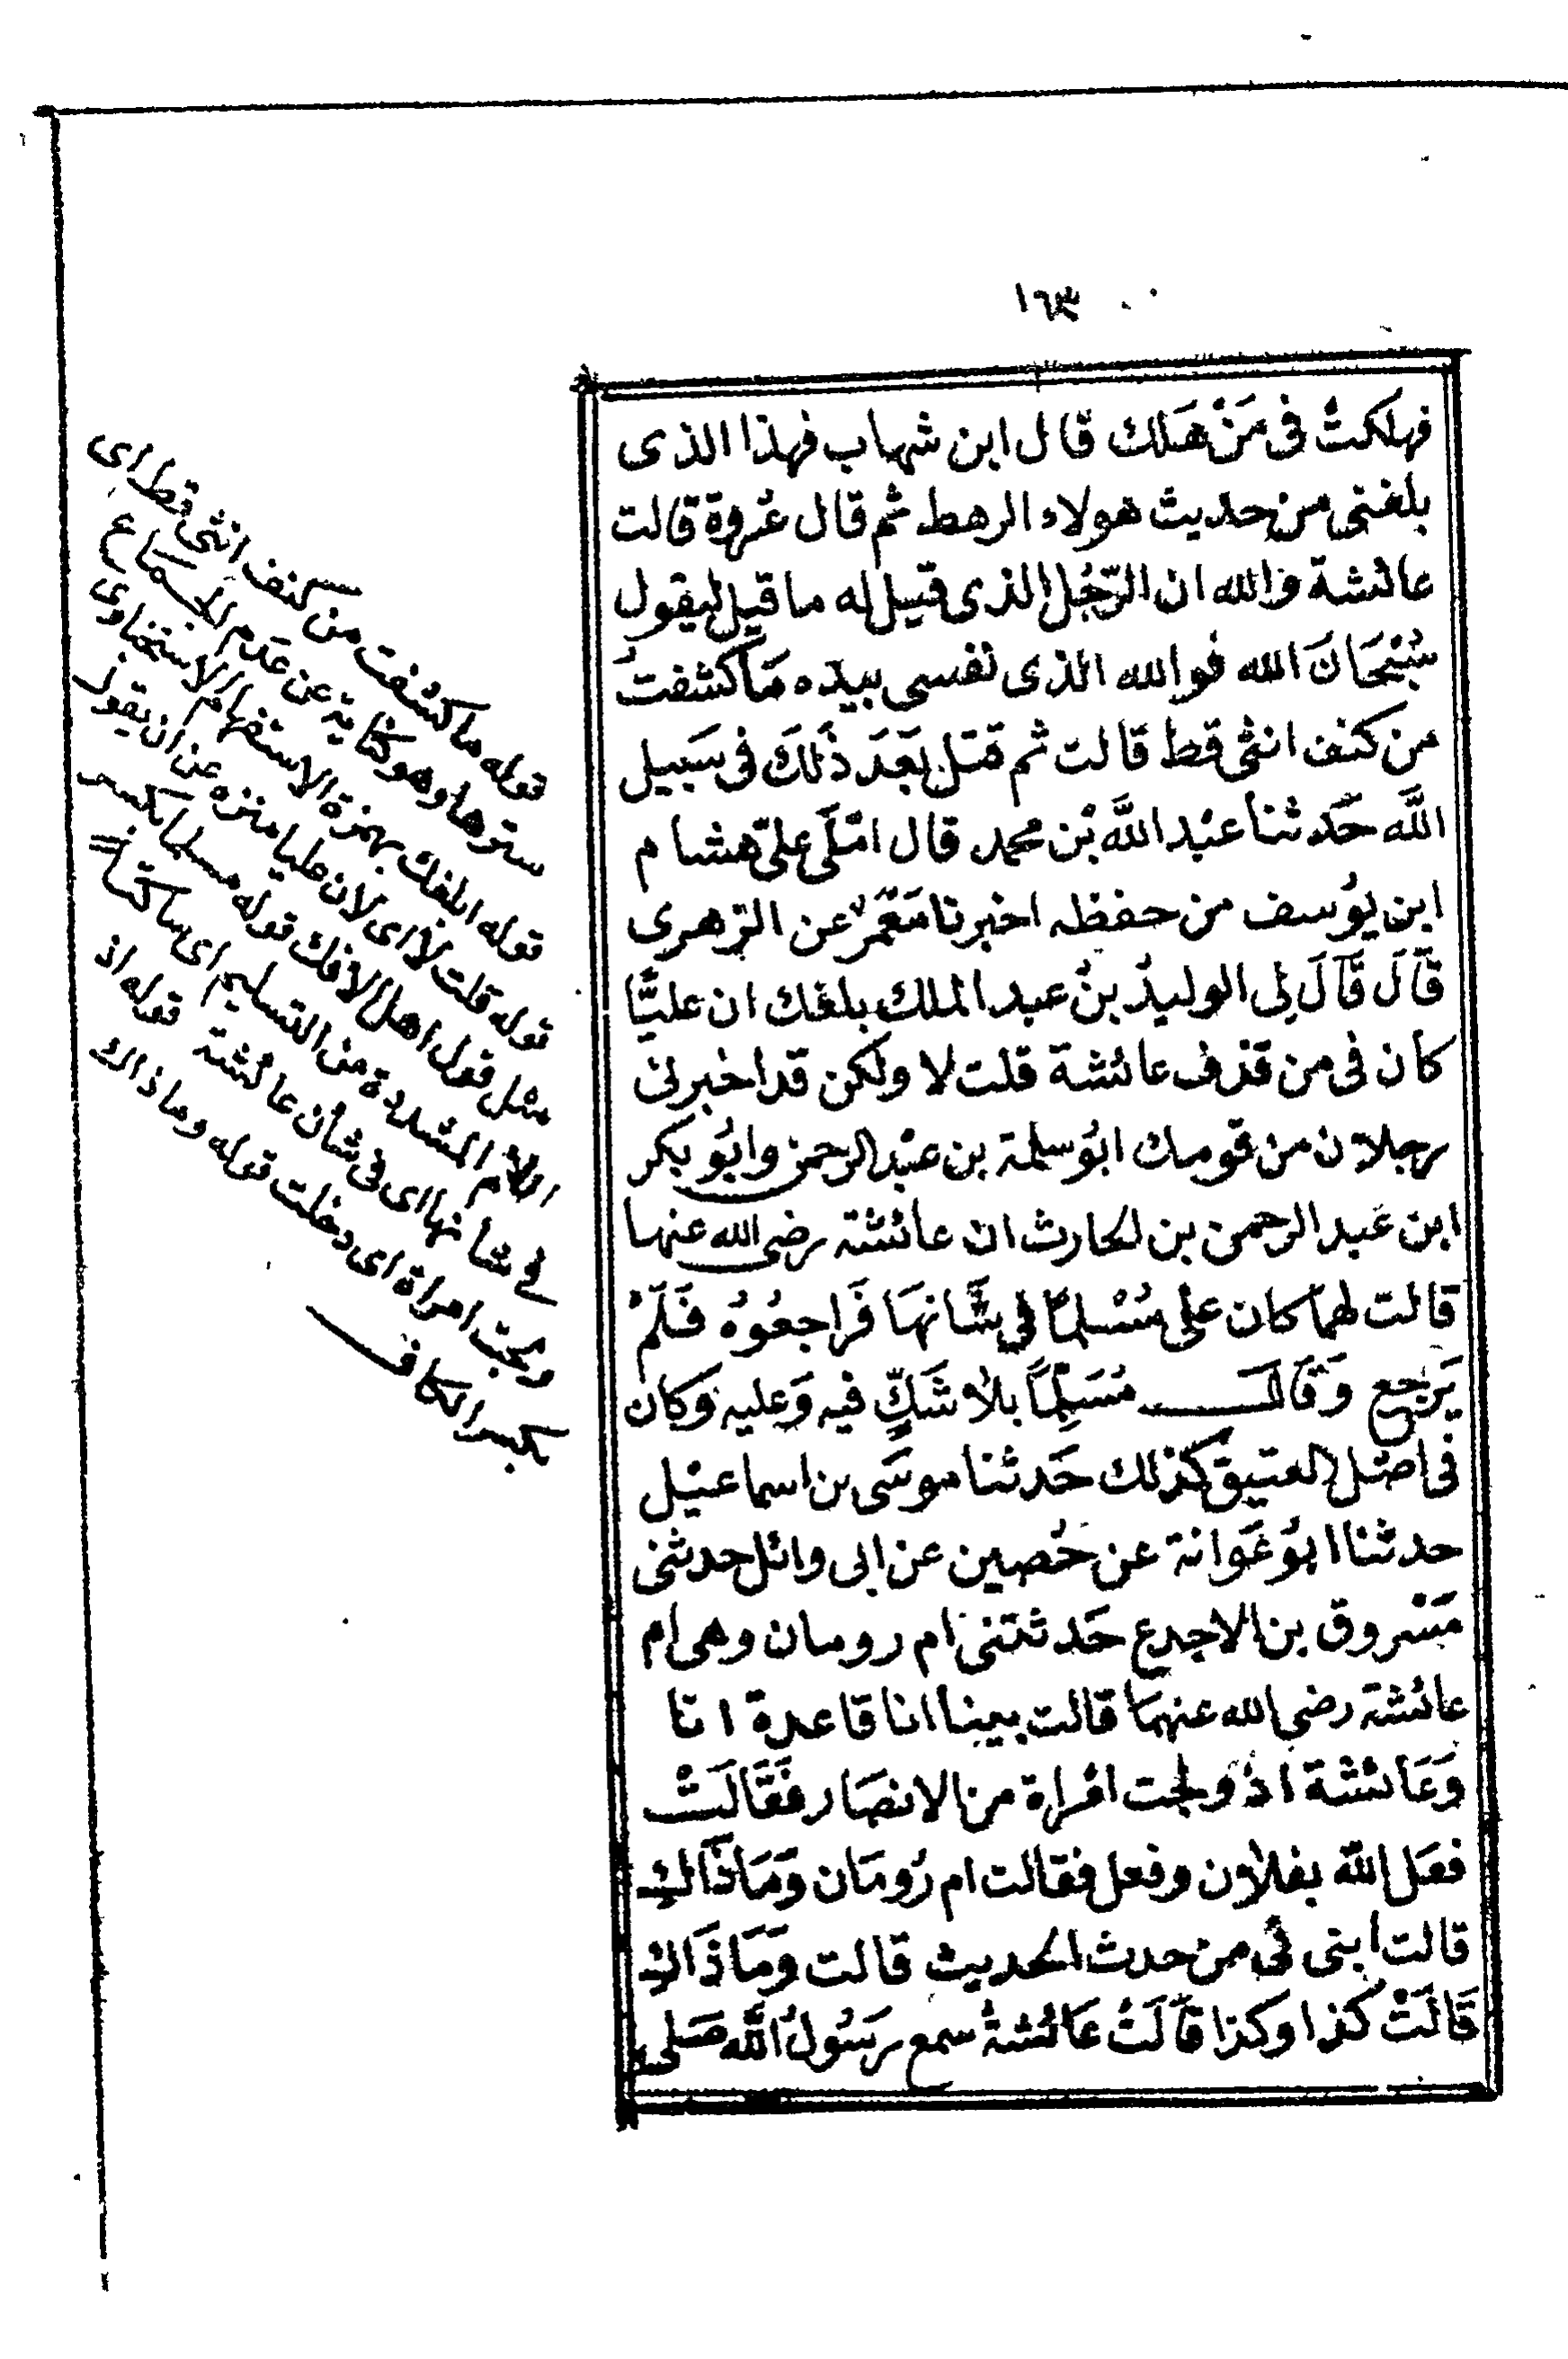 ١٦٣
فهلكتُ فى مَنْ هَلك قال ابن شهاب فهذا الذى
بلغنى من حديث هولاء الرهط ثم قال عُروة قالت
عائشة والله ان الرّجُل الذى قيل له ما قيل ليقول
سُبْحَانَ الله فوالله الذى نفسى بيده مَا كشفتُ
من كنف انثى قط قالت ثم قتل بَعَدَ ذٰلكَ فى سَبيل
اللَّه حَدثنا عبْد اللَّه بْن محمد قال امْلَى علىّ هشام
ابن يوُسف من حفظه اخبرنا مَعْمَر عن الزهرى
قَالَ قَالَ لِى الوليدُ بنُ عبد الملك بلغك ان عليًّا
كان فى من قذف عائشة قلت لا ولكن قد اخبرنى
رجلان من قومك ابوُ سلمة بن عبْد الرحمن وابوُ بكر
ابن عَبد الرحمن بن الحارث ان عائشة رضى الله عنها
قالت لهما كان على مُسْلِمًا فِي شَانهَا فَراجعُوُه فَلَمْ
يَرجع وَقَالَ مُسَلِّمًا بلا شَكٍّ فيه وَعليه وَكان
فى اصْل العتيق كذلك حَدثنا موسَى بن اسماعيْل
حدثنا ابوُ عَوانة عن حُصين عن ابى وائل حدثنى
مَسْروق بن الاجدع حَدثتنى ام رومان وهى ام
عائشة رضى الله عنهمَا قالت بينا انا قاعدة انا
وَعَائشة اذ ولجت امْراة من الانصَار فقَالَتْ
فعَل اللَّه بفلان وفعل فقالت ام رُومَان وَمَا ذَاكِ
قالت ابنى فى من حدث الحديث قالت وَمَا ذَاكِ
قَالَتْ كذا وكذا قَالَتْ عَائشةُ سمع رَسُولُ اللَّه صَلى
قوله ما كشفت من كنف انثى قط اى
سترها وهو كناية عن عدم الجماع
قوله ابلغك بهمزة الاستفهام الاستخبارى
قوله قلت لا اى لان عليا منزه عن ان يقول
مثل قول اهل الافك قوله مسلما بكسر
اللام المشددة من التسليم اى ساكتا
فى شانها اى فى شأن عائشة قوله اذ
ولجت امراة اى دخلت قوله وما ذاك
بكسر الكاف